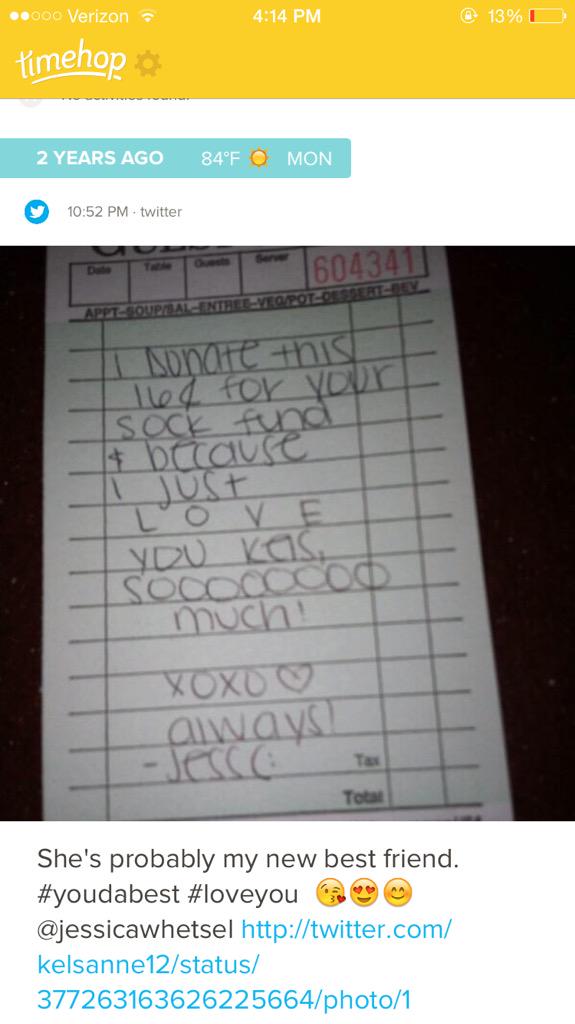 Verizon 4:14 PM 13%
timehop
No activities found.
2 YEARS AGO 84°F MON
10:52 PM · twitter
Date Table Guests Server 604341
APPT-SOUP/SAL-ENTREE-VEG/POT-DESSERT-BEV
I DONATE this
16¢ for your
sock fund
& because
I JUST
L O V E
YOU Kels,
SOOOOOOOOO
much!
XOXO ♡
always!
-Jess (:
Tax
Total
She's probably my new best friend.
#youdabest #loveyou 😘😍😊
@jessicawhetsel http://twitter.com/
kelsanne12/status/
377263163626225664/photo/1